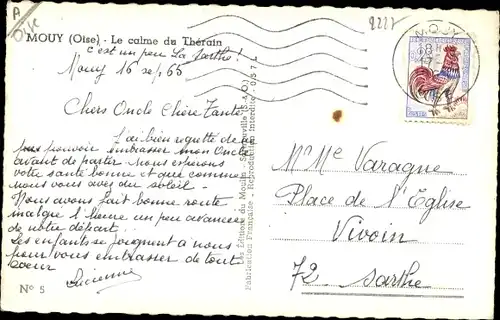 A
Oise
2227
MOUY (Oise) - Le calme du Thérain
c'est un peu La Sarthe!
Mouy 16 sep 65
Chers Oncle Chère Tante
J'ai bien regretté de ne
pas pouvoir embrasser mon Oncle
avant de partir. Nous espérons
votre santé bonne et que comme
nous vous avez du soleil -
Nous avons fait bonne route
malgré l'heure un peu avancée
de notre départ.
Les enfants se joignent à nous
pour vous embrasser de tout
coeur
Lucienne
N° 5
Les Editions du Moulin - (S.-&-O.)
Fabrication Française - Reproduction Interdite
MOUY
18 H
17
Mr Me Varagne
Place de l'Eglise
Vivoin
72 Sarthe